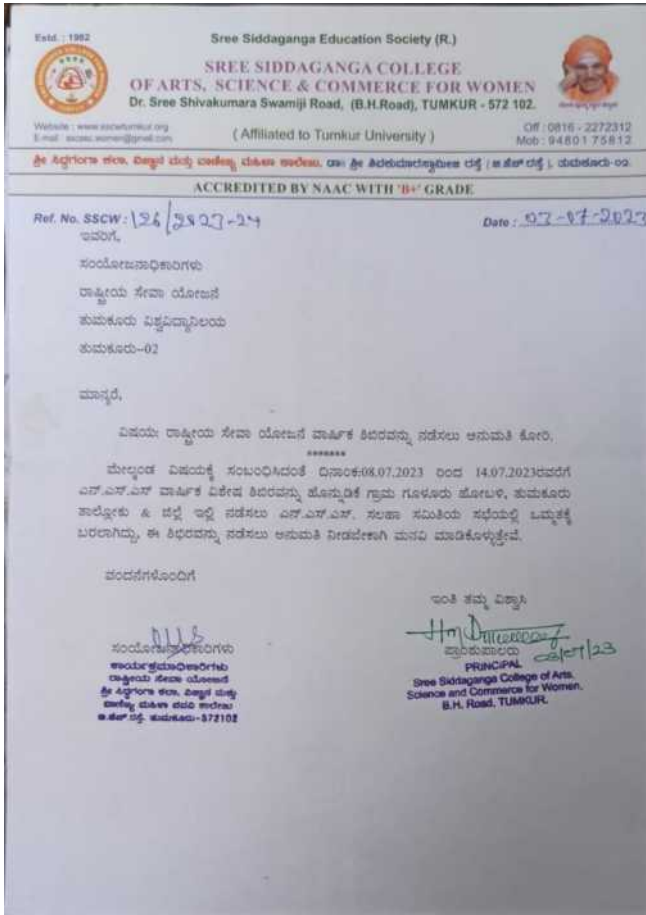 Estd. : 1982
Sree Siddaganga Education Society (R.)
SREE SIDDAGANGA COLLEGE
OF ARTS, SCIENCE & COMMERCE FOR WOMEN
Dr. Sree Shivakumara Swamiji Road, (B.H.Road), TUMKUR - 572 102.
Off : 0816 - 2272312
( Affiliated to Tumkur University )
Mob : 94801 75812
ಶ್ರೀ ಸಿದ್ಧಗಂಗಾ ಕಲಾ, ವಿಜ್ಞಾನ ಮತ್ತು ವಾಣಿಜ್ಯ ಮಹಿಳಾ ಕಾಲೇಜು, ಡಾ. ಶ್ರೀ ಶಿವಕುಮಾರಸ್ವಾಮೀಜಿ ರಸ್ತೆ ( ಬಿ.ಹೆಚ್ ರಸ್ತೆ ), ತುಮಕೂರು-೦೨.
ACCREDITED BY NAAC WITH 'B+' GRADE
Ref. No. SSCW : 126/2023-24
Date : 03-07-2023
ಇವರಿಗೆ,
ಸಂಯೋಜನಾಧಿಕಾರಿಗಳು
ರಾಷ್ಟ್ರೀಯ ಸೇವಾ ಯೋಜನೆ
ತುಮಕೂರು ವಿಶ್ವವಿದ್ಯಾನಿಲಯ
ತುಮಕೂರು–02
ಮಾನ್ಯರೆ,
ವಿಷಯ: ರಾಷ್ಟ್ರೀಯ ಸೇವಾ ಯೋಜನೆ ವಾರ್ಷಿಕ ಶಿಬಿರವನ್ನು ನಡೆಸಲು ಅನುಮತಿ ಕೋರಿ.
*******
ಮೇಲ್ಕಂಡ ವಿಷಯಕ್ಕೆ ಸಂಬಂಧಿಸಿದಂತೆ ದಿನಾಂಕ:08.07.2023 ರಿಂದ 14.07.2023ರವರೆಗೆ
ಎನ್.ಎಸ್.ಎಸ್ ವಾರ್ಷಿಕ ವಿಶೇಷ ಶಿಬಿರವನ್ನು ಹೊನ್ನುಡಿಕೆ ಗ್ರಾಮ ಗೂಳೂರು ಹೋಬಳಿ, ತುಮಕೂರು
ತಾಲ್ಲೋಕು & ಜಿಲ್ಲೆ ಇಲ್ಲಿ ನಡೆಸಲು ಎನ್.ಎಸ್.ಎಸ್. ಸಲಹಾ ಸಮಿತಿಯ ಸಭೆಯಲ್ಲಿ ಒಮ್ಮತಕ್ಕೆ
ಬರಲಾಗಿದ್ದು, ಈ ಶಿಭಿರವನ್ನು ನಡೆಸಲು ಅನುಮತಿ ನೀಡಬೇಕಾಗಿ ಮನವಿ ಮಾಡಿಕೊಳ್ಳುತ್ತೇವೆ.
ವಂದನೆಗಳೊಂದಿಗೆ
ಇಂತಿ ತಮ್ಮ ವಿಶ್ವಾಸಿ
ಸಂಯೋಜನಾಧಿಕಾರಿಗಳು
ಕಾರ್ಯಕ್ರಮಾಧಿಕಾರಿಗಳು
ರಾಷ್ಟ್ರೀಯ ಸೇವಾ ಯೋಜನೆ
ಶ್ರೀ ಸಿದ್ಧಗಂಗಾ ಕಲಾ, ವಿಜ್ಞಾನ ಮತ್ತು
ವಾಣಿಜ್ಯ ಮಹಿಳಾ ಪದವಿ ಕಾಲೇಜು
ಬಿ.ಹೆಚ್.ರಸ್ತೆ, ತುಮಕೂರು-572102
ಪ್ರಾಂಶುಪಾಲರು
03/07/23
PRINCIPAL
Sree Siddaganga College of Arts,
Science and Commerce for Women,
B.H. Road, TUMKUR.